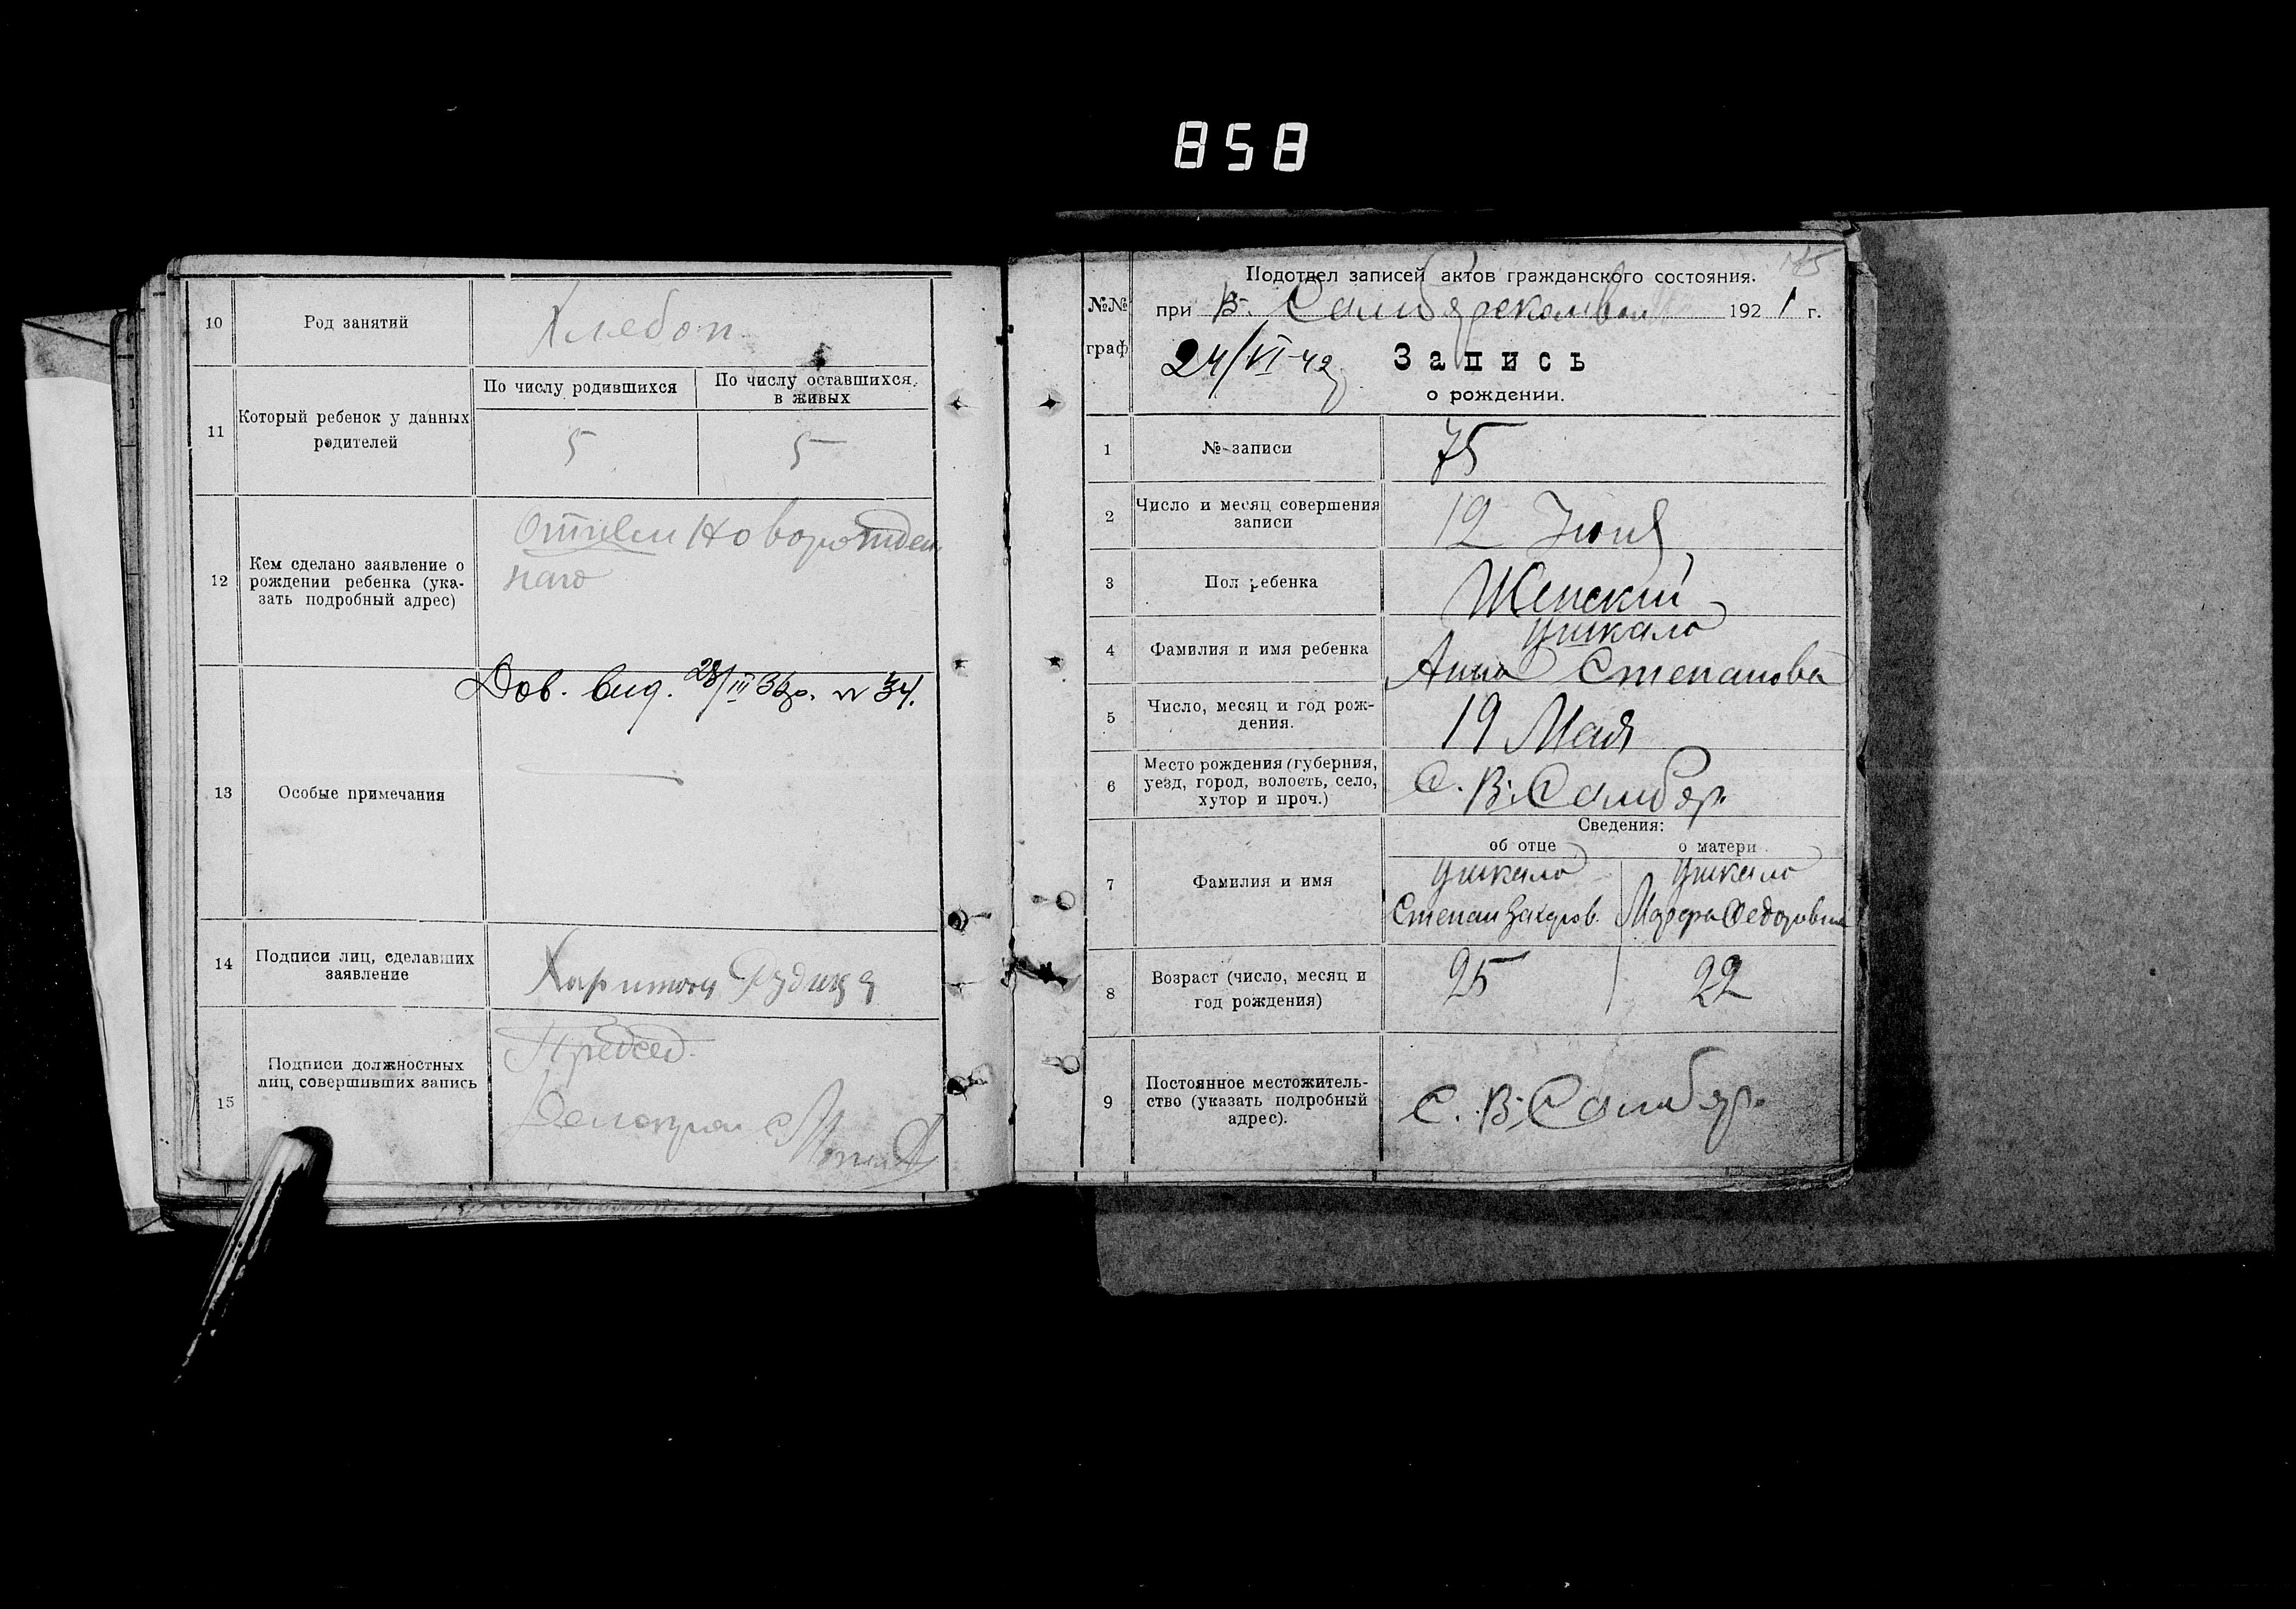 858
10
Род занятий
Хлебоп
11
Который ребенок у данных
родителей
По числу родившихся
По числу оставшихся
в живых
5
5
12
Кем сделано заявление о
рождении ребенка (ука-
зать подробный адрес)
Отцем Новорожден
наго
13
Особые примечания
Дов. вид. 28/III 36р. N 34.
14
Подписи лиц, сделавших
заявление
Харитон
15
Подписи должностных
лиц, совершивших запись
Председ.
№№
граф
Подотдел записей актов гражданского состояния.
при В. 1921 г.
24/VI-42
Запись
о рождении.
1
№ записи
75
2
Число и месяц совершения
записи
12 Июня
3
Пол ребенка
Женский
4
Фамилия и имя ребенка
Анна Степанова
5
Число, месяц и год рож-
дения.
19 Мая
6
Место рождения (губерния,
уезд, город, волость, село,
хутор и проч.)
С. В. Самбор.
Сведения:
об отце
о матери
7
Фамилия и имя
Степан Захаров.
Марфа Федоровна
8
Возраст (число, месяц и
год рождения)
25
22
9
Постоянное местожитель-
ство (указать подробный
адрес).
С. В. Самбор.